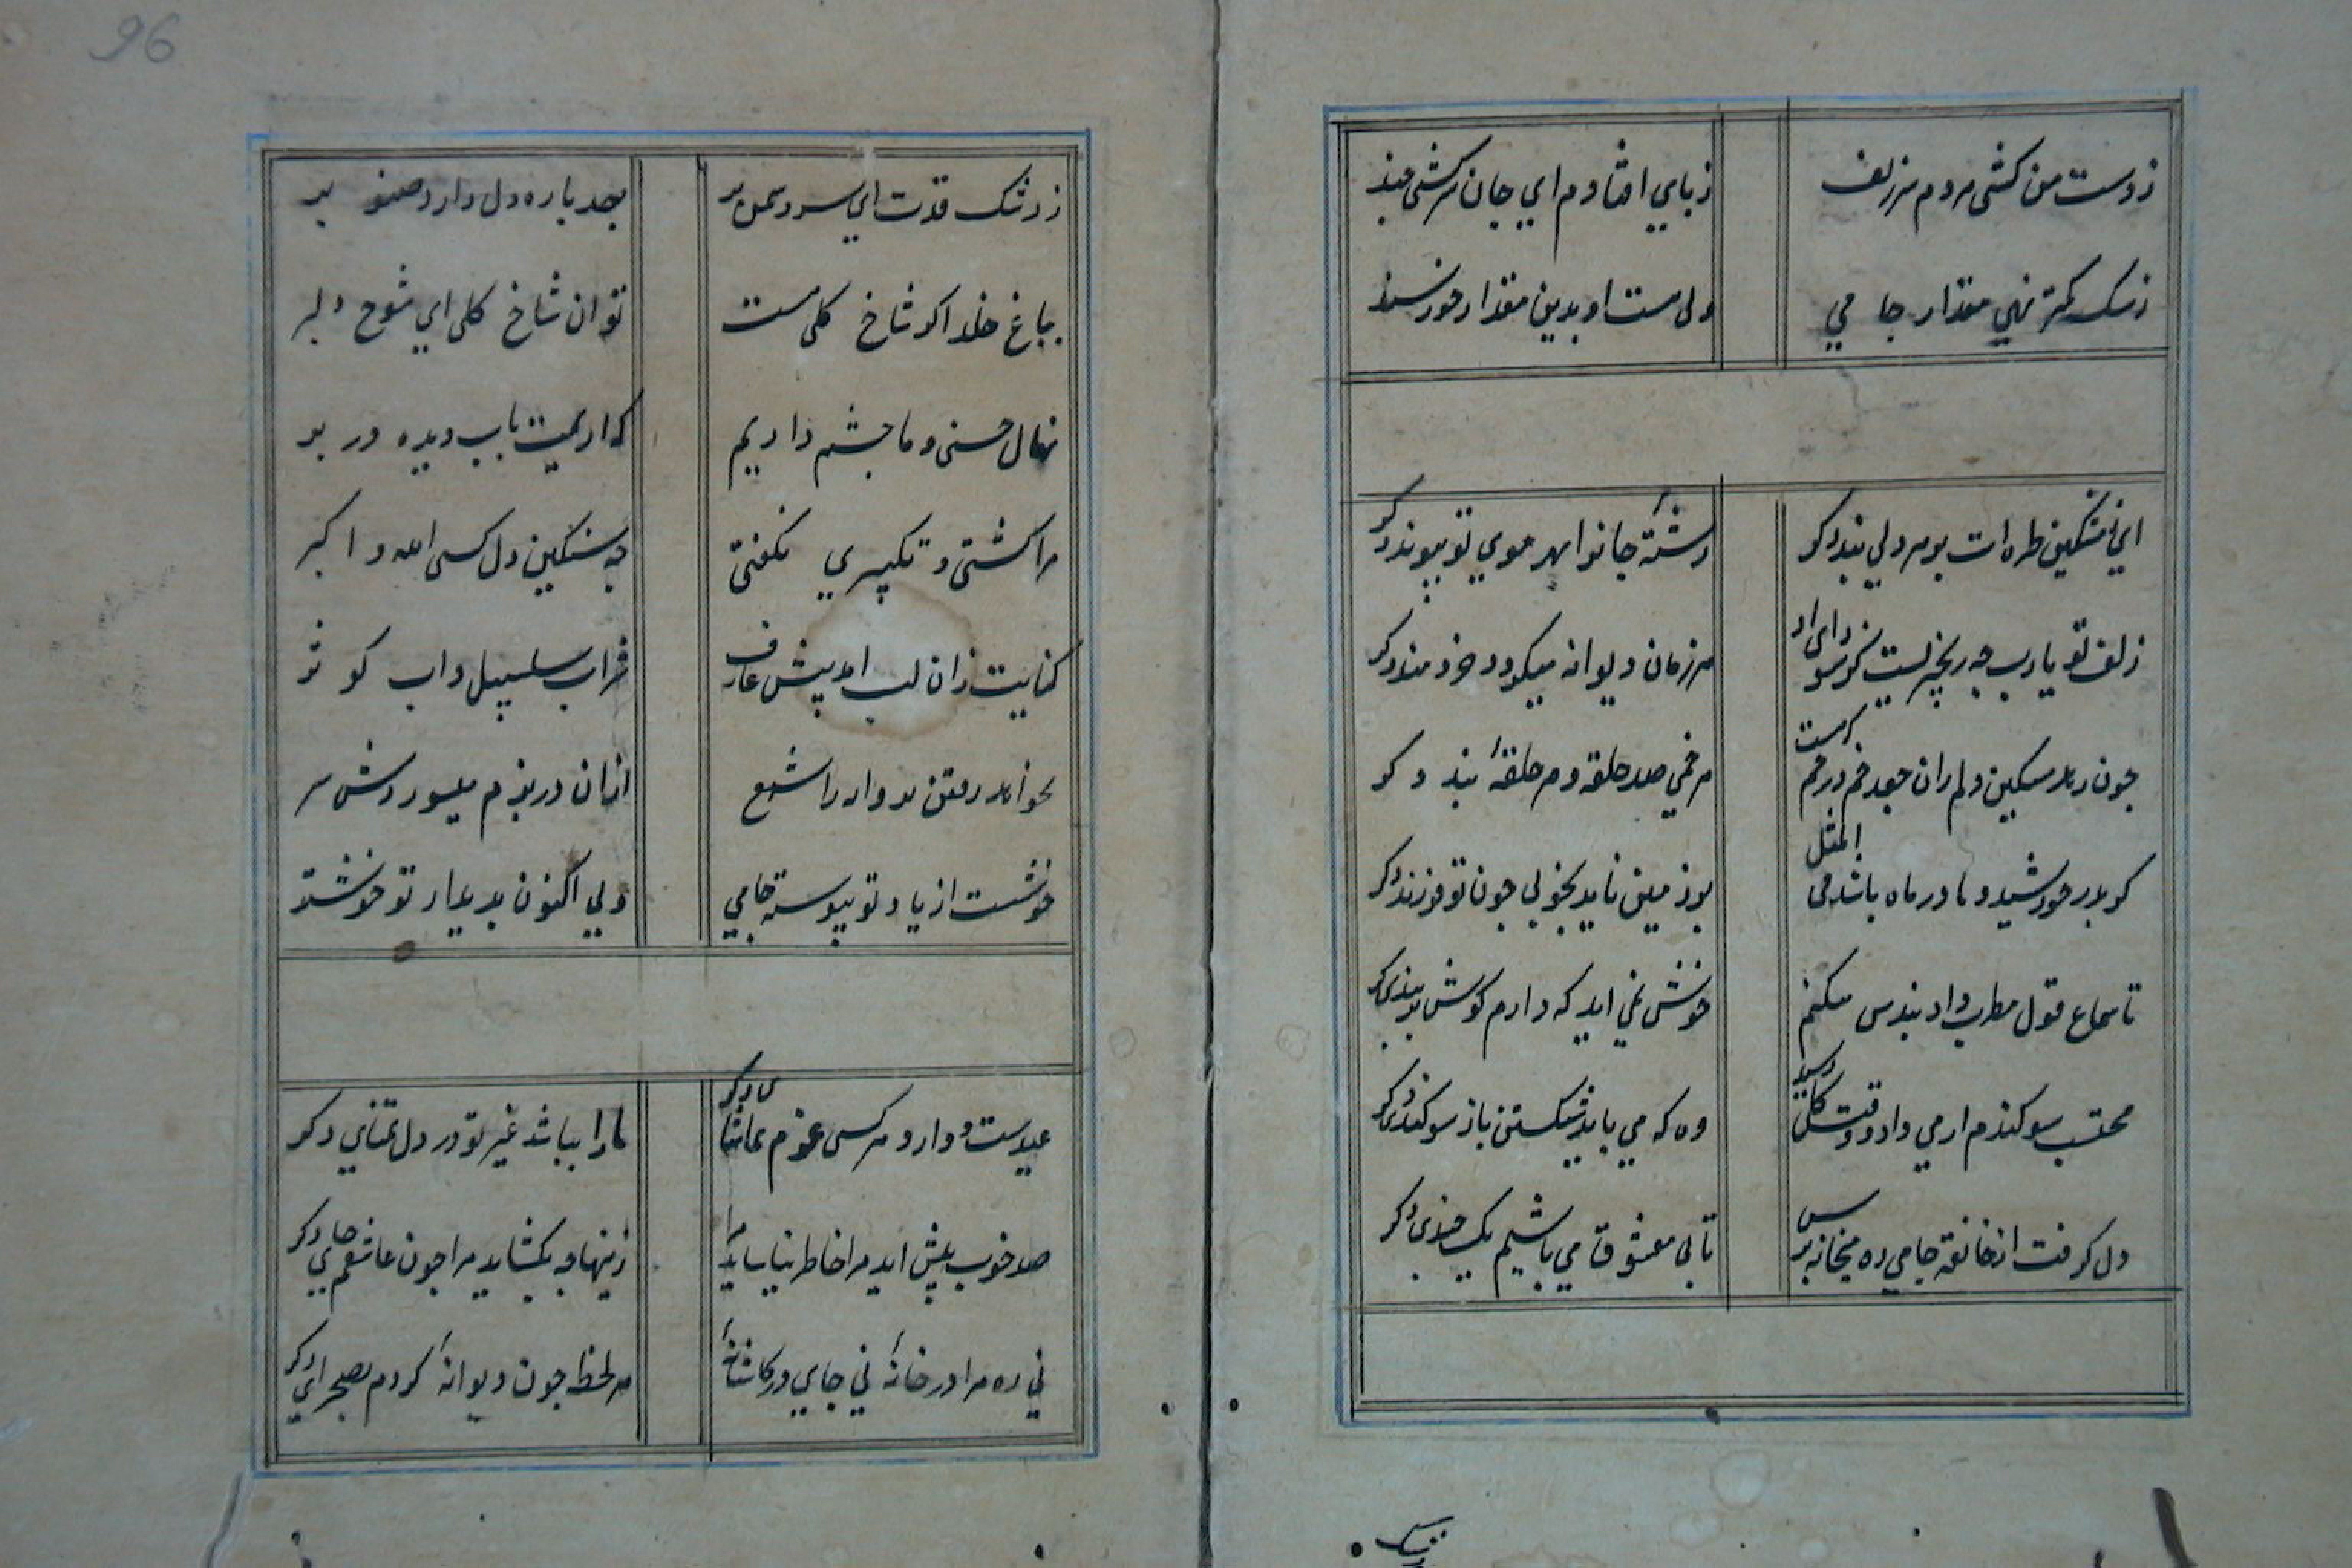 ز دست من کشی هر دم سر زلف
ز پای افتادم ای جان سرکشی چند
ز سک کمتر نهی مقدار جامی
ولی هست او بدین مقدار خورسند
ای ز مشکین طره ات بر هر دلی بند دکر
رشتهٔ جانرا بهر موی تو پیوند دکر
زلف تو یارب چه زنجیرست کز سودای او
هر زمان دیوانه میکردد خردمند دکر
چون رهد مسکین دلم زان جعد خم در خم که هست
هر خمی صد حلقه و هر حلقهٔ بند دکر
کر پدر خورشید و مادر ماه باشد فی المثل
بر زمین ناید بخوبی چون تو فرزند دکر
تا سماع قول مطرب داد پند من میکنم
خوش نمی اید که دارم کوش بر پند دکر
محتسب سوکندم از می داد و وقت کل رسید
وه که می باید شکستن باز سوکند دکر
دل کرفت از خانقه جامی ره میخانه پرس
تا بی معشوق و می باشیم یک چندی دکر
96
ز رشک قدت ای سرو سمن بر
بصد پاره دل دارد صنوبر
بباغ خلد اکر شاخ کلی هست
تو ان شاخ کلی ای شوخ دلبر
نهال حسنی و ما چشم داریم
که اریمت باب دیده در بر
مرا کشتی و تکبیری نکفتی
چه سنکین دل کسی الله و اکبر
کنایت زان لب امد پیش عارف
شراب سلسبیل و اب کوثر
بخواند رفتن پروانه را شمع
ازان در بزم میسوزدش سر
خوشست از یاد تو پیوسته جامی
ولی اکنون بدیدار تو خوشتر
عیدست و دارد هر کسی عزم تماشای دکر
ما را نباشد غیر تو در دل تمنای دکر
صد خوب پیش اید مرا خاطر نیاساید مرا
زینها چه بکشاید مرا چون عاشقم جای دکر
نی ره مرا در خانهٔ نی جای در کاشانهٔ
هر لحظه چون دیوانهٔ کردم بصحرای دکر